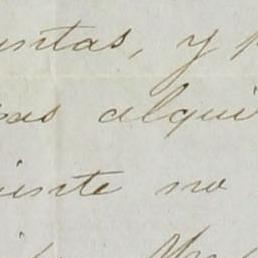 untas, y p
as alqui
iente no